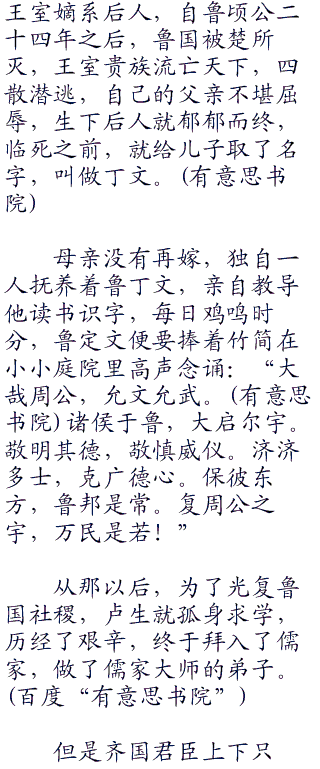 王室嫡系后人，自鲁顷公二
十四年之后，鲁国被楚所
灭，王室贵族流亡天下，四
散潜逃，自己的父亲不堪屈
辱，生下后人就郁郁而终，
临死之前，就给儿子取了名
字，叫做丁文。(有意思书
院)
母亲没有再嫁，独自一
人抚养着鲁丁文，亲自教导
他读书识字，每日鸡鸣时
分，鲁定文便要捧着竹简在
小小庭院里高声念诵：“大
哉周公，允文允武。(有意思
书院)诸侯于鲁，大启尔宇。
敬明其德，敬慎威仪。济济
多士，克广德心。保彼东
方，鲁邦是常。复周公之
宇，万民是若！”
从那以后，为了光复鲁
国社稷，卢生就孤身求学，
历经了艰辛，终于拜入了儒
家，做了儒家大师的弟子。
(百度“有意思书院”)
但是齐国君臣上下只